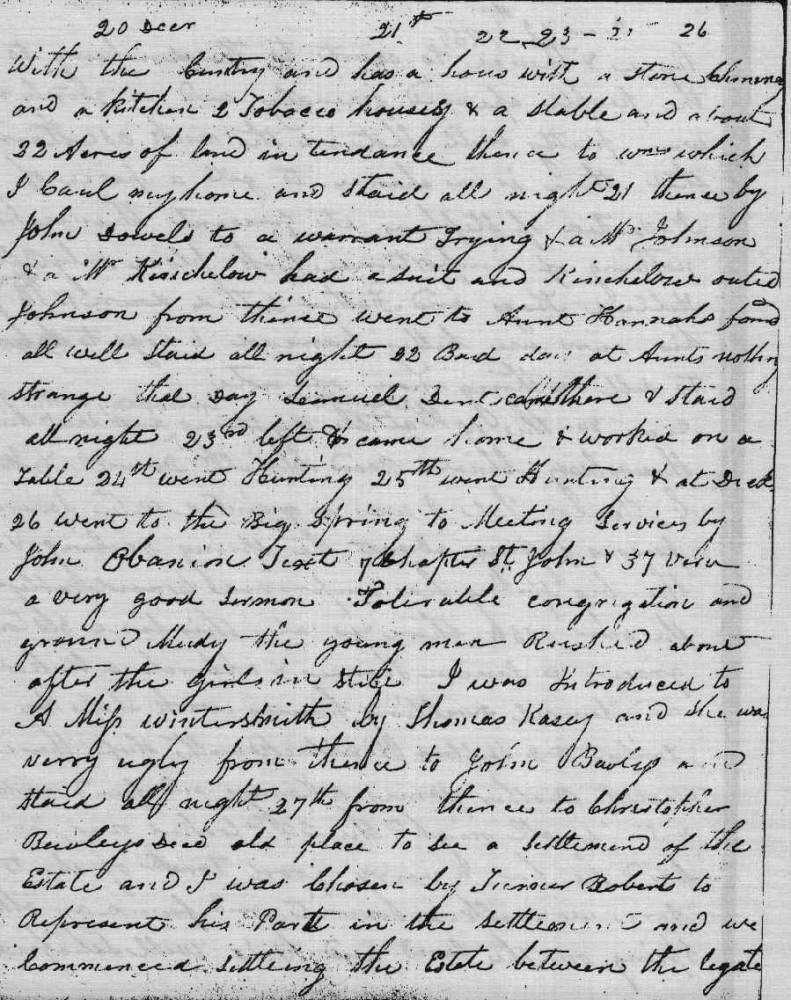 20 Decr 21st 22 23 - 26
With the Cuntry and has a hous with a stone Chimney
and a kitchen 2 Tobacco houses & a stable and about
22 Acres of land in tendance thence to Wms which
I Caul my home and Staid all night 21 thence by
John Dowels to a warrant Trying & a Mr Johnson
& a Mr Kinchelow had a suit and Kinchelow outed
Johnson from thence went to Aunt Hannahs found
all well Staid all night 22 Bad day at Aunts nothing
strange that Day Samuel Dent came there & staid
all night 23rd left & came home & worked on a
Table 24st went Hunting 25th went Hunting & at
26 went to the Big Spring to Meeting Services by
John Obanion Text 7 Chapter St John & 37 verse
a very good Sermon Tolirable congrigation and
ground Mudy the young men Rushed about
after the Girls in Stile I was Introduced to
A Miss wintersmith by Thomas Kasey and she was
verry ugly from thence to John Bewleys and
Staid all night 27th from thence to Christopher
Bewleys Decd old place to see a Settlement of the
Estate and I was Chosen by Turner Roberts to
Represent his Part in the Settlement and we
Commenced settleing the Estate between the legate